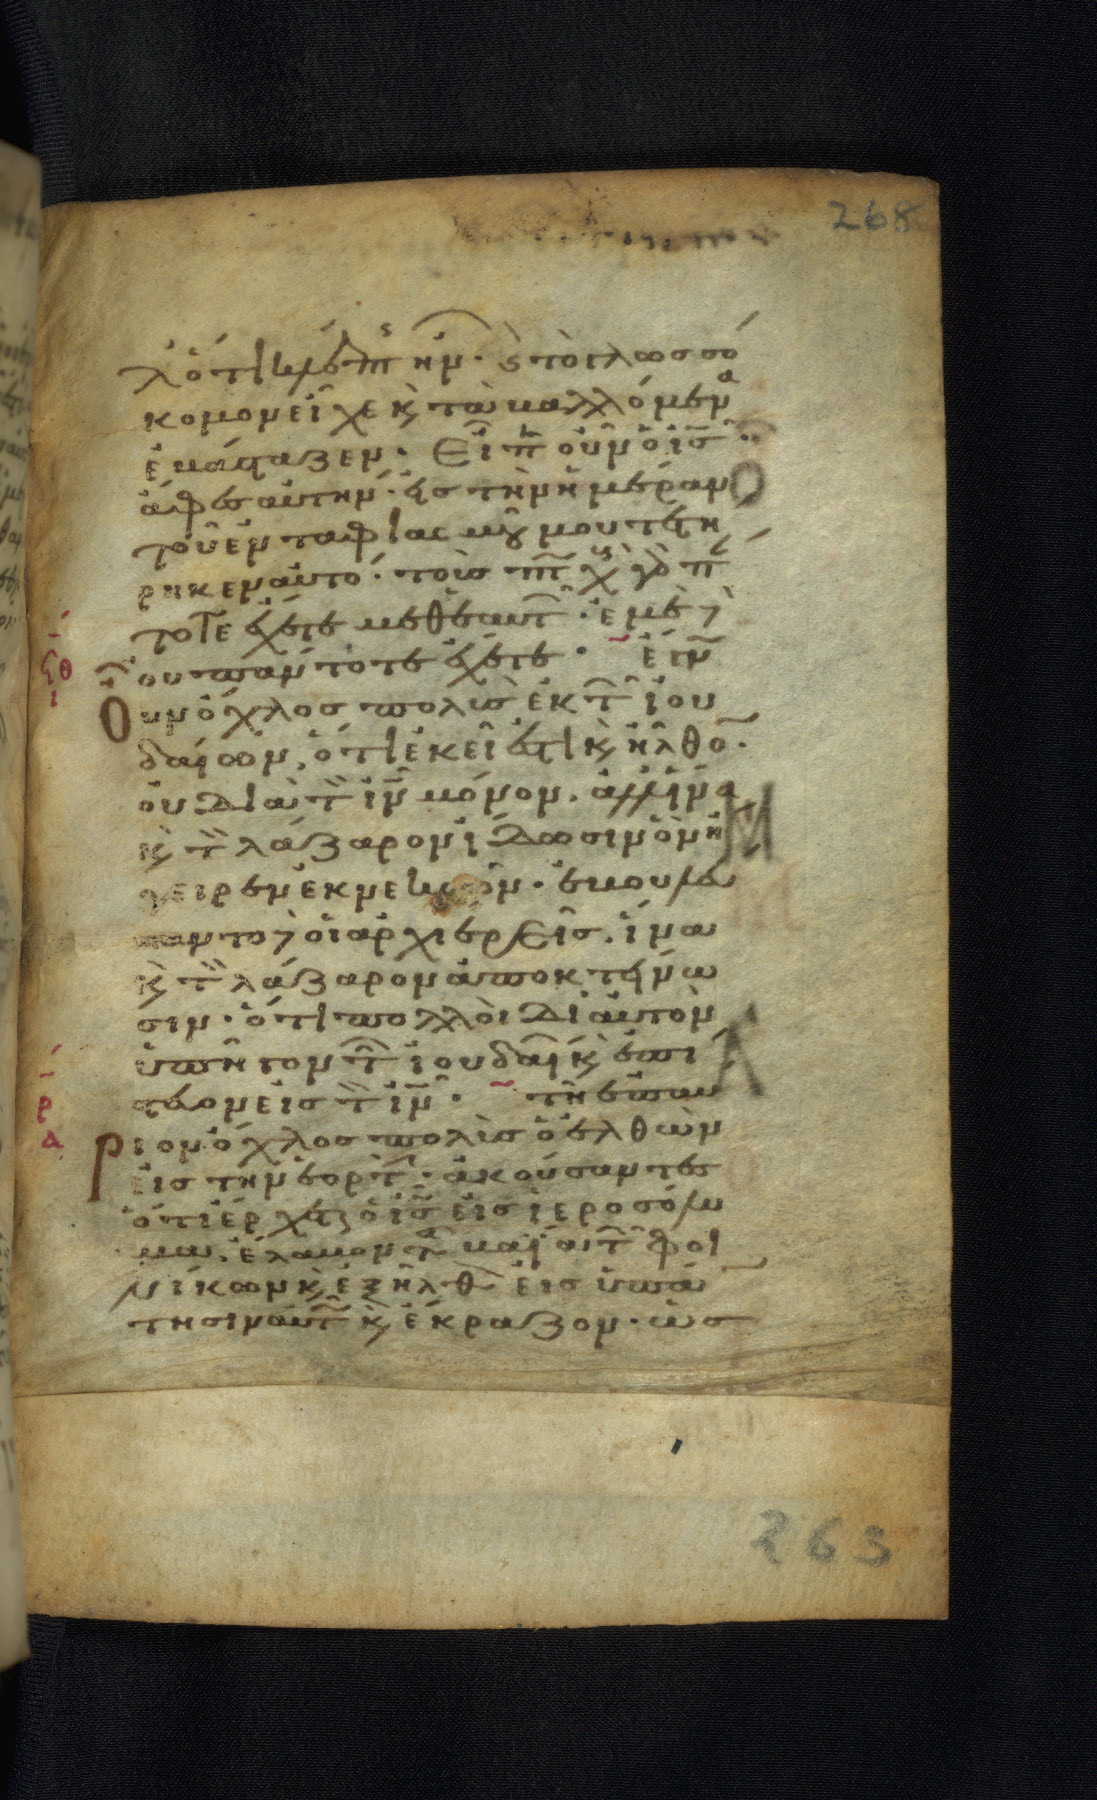 268
λ ὅτι κλέπτης ἦν· ϗ τὸ γλωσσό
κομον εἶχε ϗ τὰ βαλλόμενα
ἐβάσταζεν· Εἶπεν οὖν ὁ ι̅ς̅·
ἄφες αὐτήν· εἰς τὴν ἡμέραν
τοῦ ἐνταφιασμοῦ μου τετή
ρηκεν αὐτό· τοὺς πτωχοὺς γὰρ πάν
τοτε ἔχετε μεθ ἑαυτῶν· ἐμὲ δὲ
οὐ πάντοτε ἔχετε· ἔγνω
Οὖν ὄχλος πολὺς ἐκ τῶν ἰου
δαίων, ὅτι ἐκεῖ ἐστι ϗ ἦλθον·
οὐ διὰ τὸν ι̅ν̅ μόνον, ἀλλ ἵνα
ϗ τὸν λάζαρον ἴδωσιν ὃν ἤ
γειρεν ἐκ νεκρῶν· ἐβουλεύ
σαντο δὲ οἱ ἀρχιερεῖς, ἵνα
ϗ τὸν λάζαρον ἀποκτείνω
σιν· ὅτι πολλοὶ δι αὐτὸν
ὑπῆγον τῶν ἰουδαίων ϗ ἐπί
στευον εἰς τὸν ι̅ν̅· τῇ ἐπαύ
ριον ὄχλος πολὺς ὁ ἐλθὼν
εἰς τὴν ἑορτήν· ἀκούσαντες
ὅτι ἔρχεται ὁ ι̅ς̅ εἰς ἱεροσόλυ
μα, ἔλαβον τὰ βαΐα τῶν φοι
νίκων ϗ ἐξῆλθον εἰς ὑπάν
τησιν αὐτῷ ϗ ἔκραζον· ὡσ
263